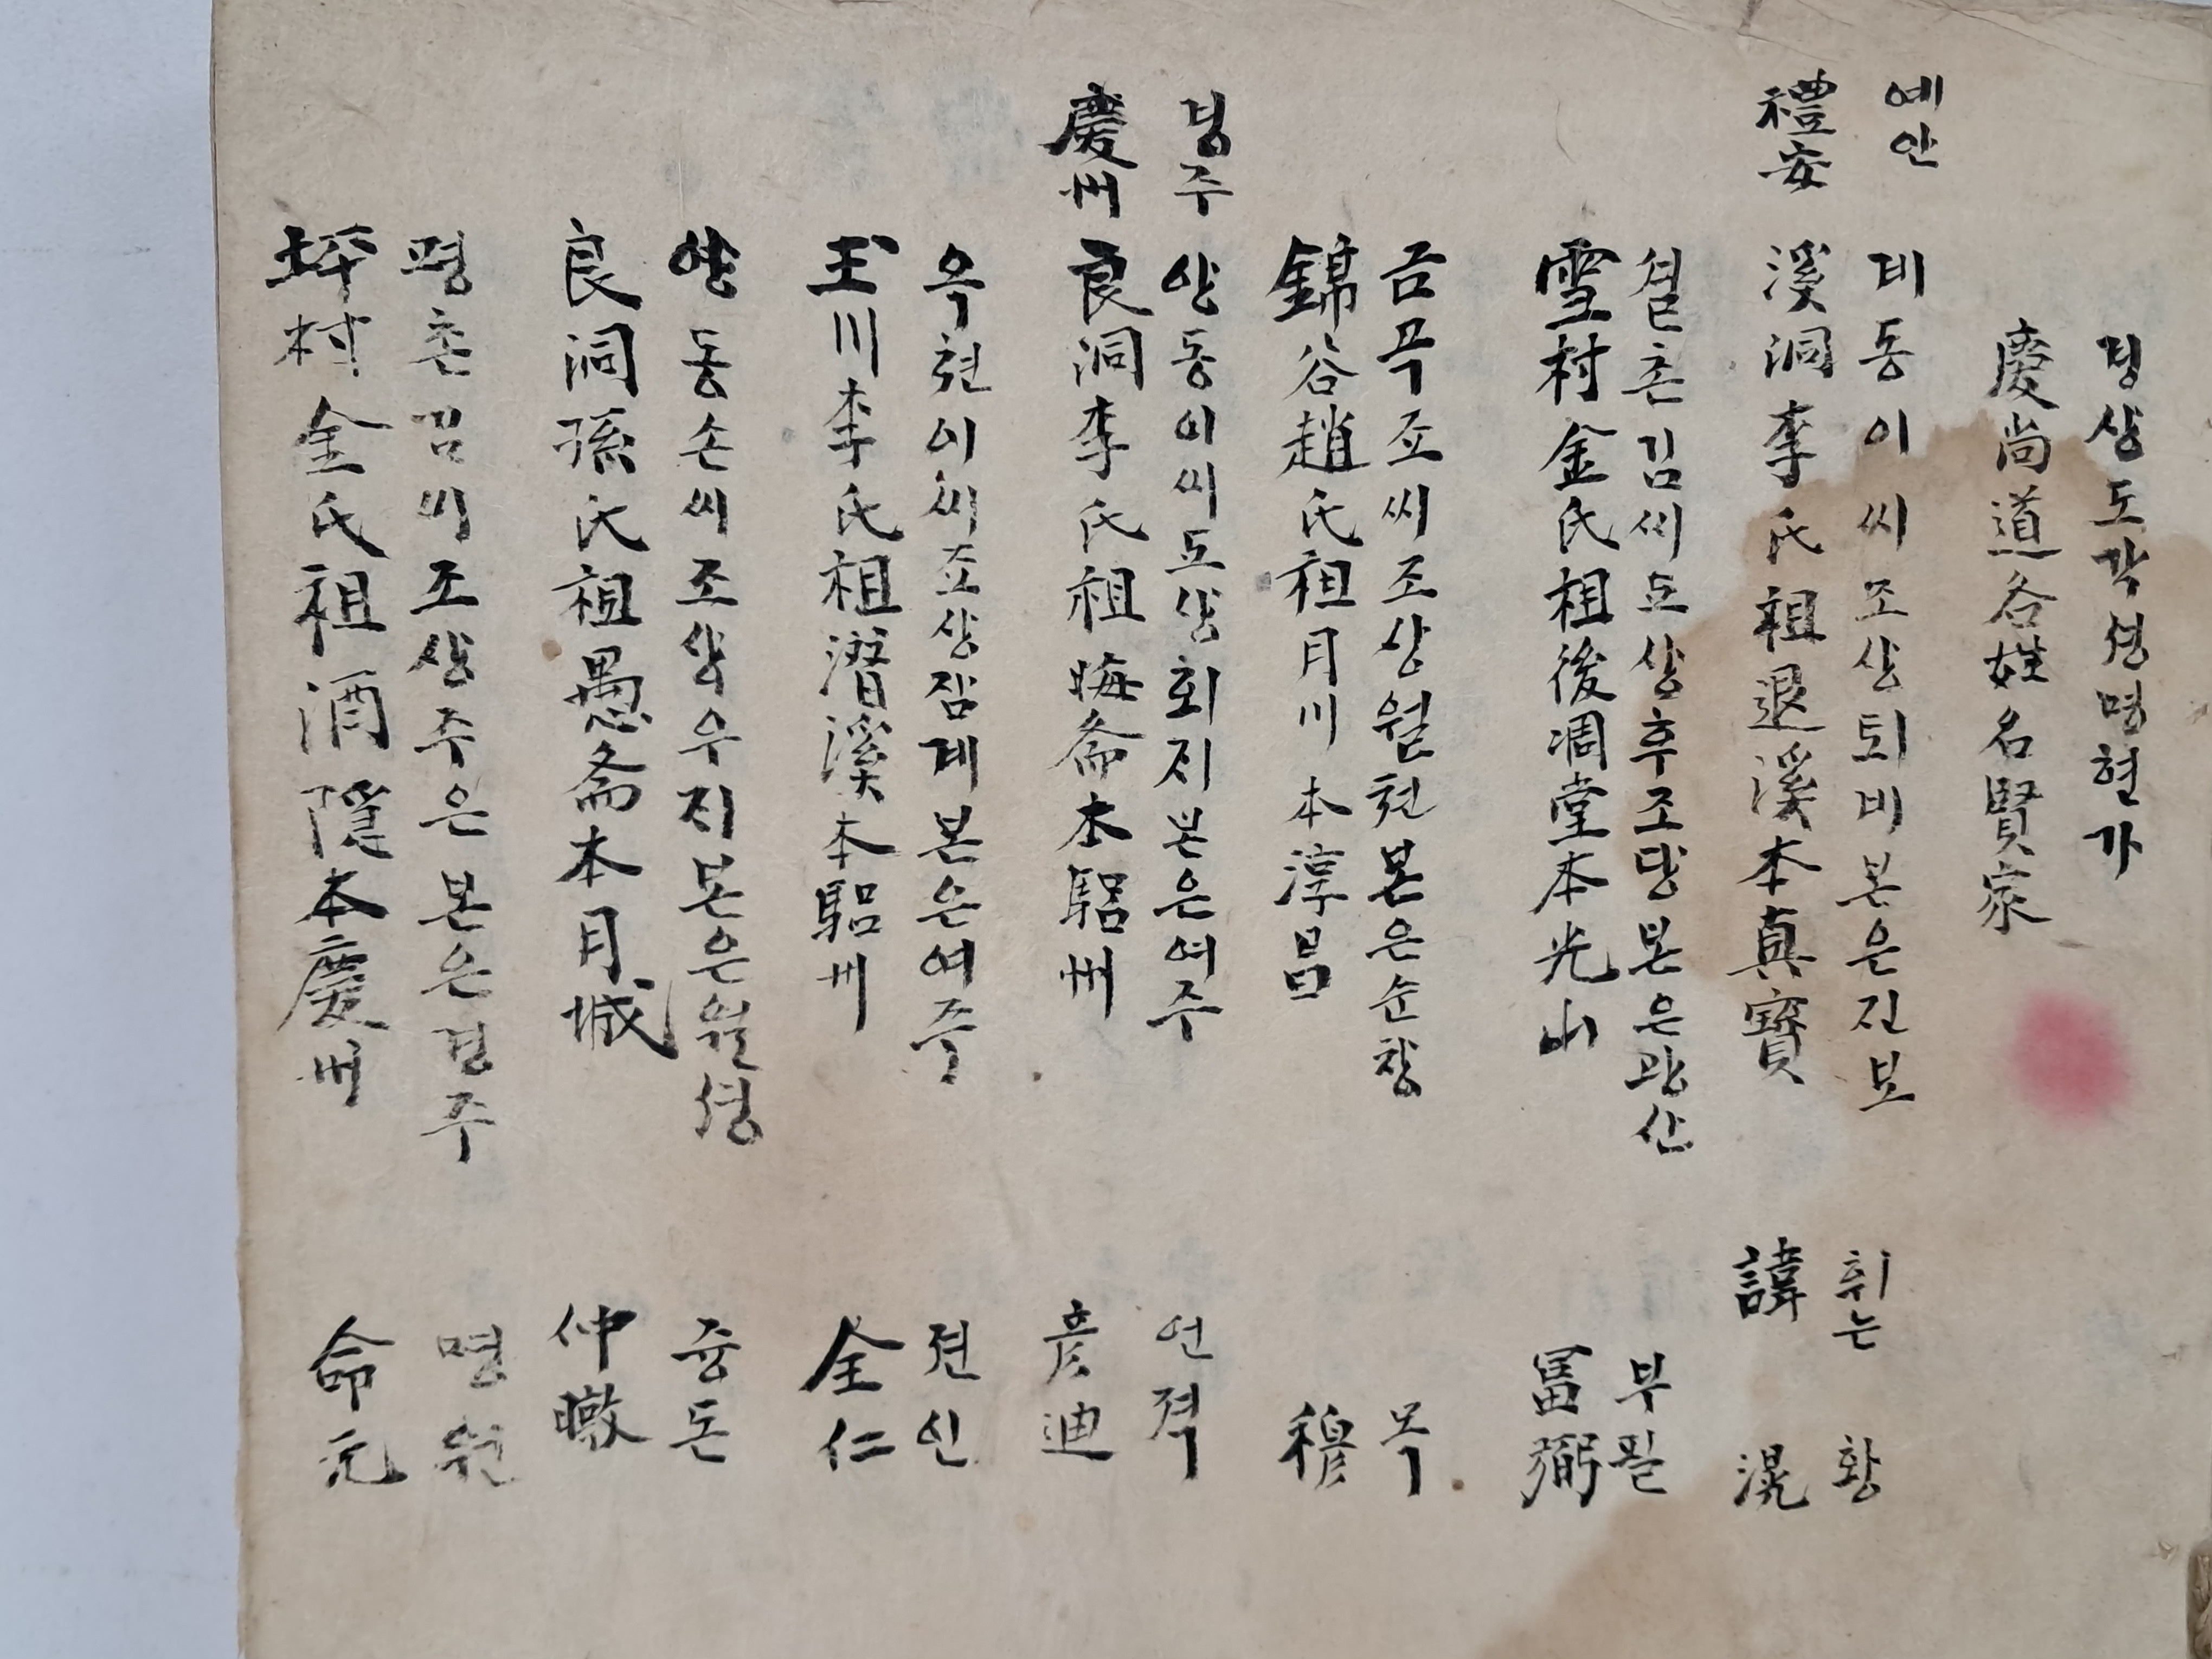 경상도각셩명현가
慶尚道各姓名賢家
예안 계동이씨조상퇴비본은진보 휘는 황
禮安 溪洞李氏祖退溪本真寶 諱 滉
셜촌김씨됴상후조당본은광산 부필
雪村金氏祖後凋堂本光山 冨弼
금곡죠씨조상월쳔본은순창 목
錦谷趙氏祖月川本淳昌 穆
경주 양동이씨됴상회지본은여주 언젹
慶州 良洞李氏祖晦斋本驪州 彦迪
옥쳔이씨죠상잠계본은여쥬 젼인
玉川李氏祖潛溪本驪州 全仁
양동손씨조상우지본은월셩 즁돈
良洞孫氏祖愚斋本月城 仲暾
평촌김씨조상주은본은경주 명원
坪村金氏祖酒隠本慶州 命元